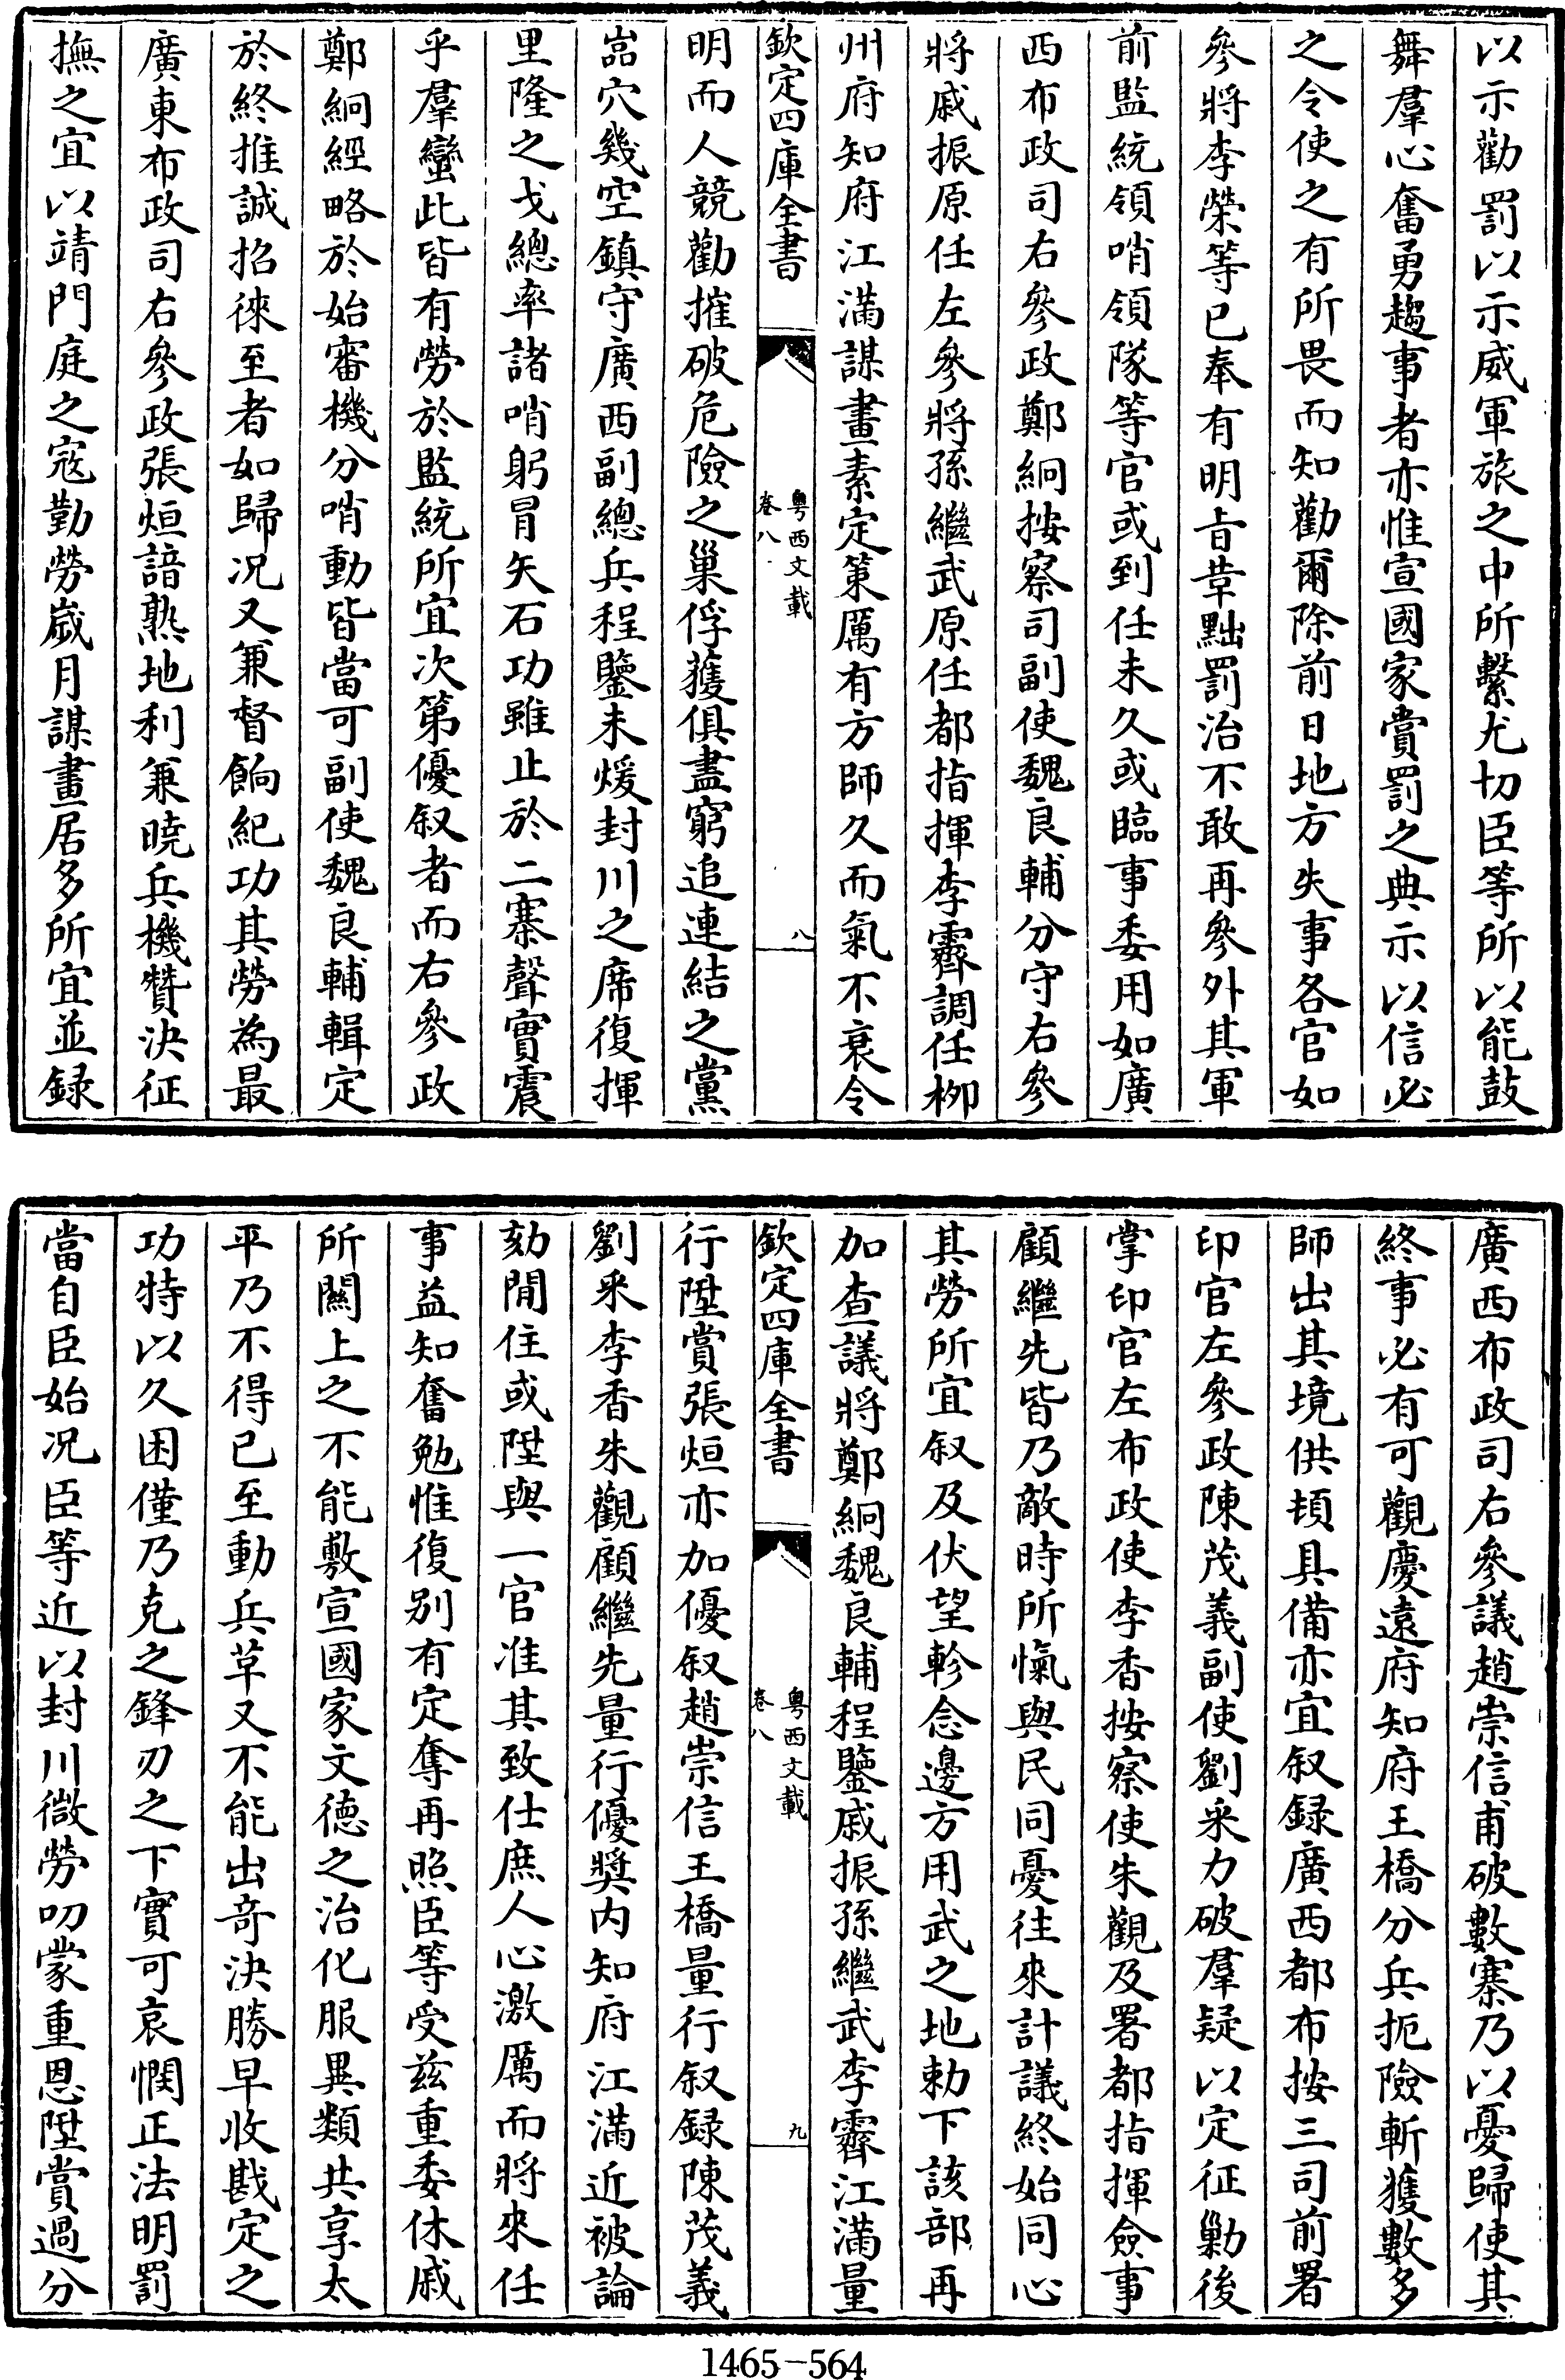 以示勸罰以示威軍旅之中所繫尤切臣等所以能鼓
舞羣心奮勇趨事者亦惟宣國家賞罰之典示以信必
之令使之有所畏而知勸爾除前日地方失事各官如
參將李榮等已奉有明旨革黜罰治不敢再參外其軍
前監統領哨領隊等官或到任未久或臨事委用如廣
西布政司右參政鄭絅按察司副使魏良輔分守右參
將戚振原任左參將孫繼武原任都指揮李霽調任柳
州府知府江滿謀畫素定策厲有方師久而氣不衰令
欽定四庫全書
粤西文載
卷八
八
明而人競勸摧破危險之巢俘獲俱盡窮追連結之黨
嵓穴幾空鎮守廣西副總兵程鑒未煖封川之席復揮
里隆之戈總率諸哨躬冒矢石功雖止於二寨聲實震
乎羣蠻此皆有勞於監統所宜次第優叙者而右參政
鄭絅經略於始審機分哨動皆當可副使魏良輔輯定
於終推誠招徠至者如歸况又兼督餉紀功其勞為最
廣東布政司右參政張烜諳熟地利兼曉兵機贊決征
撫之宜以靖門庭之宼勤勞嵗月謀畫居多所宜並録
廣西布政司右參議趙崇信甫破數寨乃以憂歸使其
終事必有可觀慶遠府知府王橋分兵扼險斬獲數多
師出其境供頓具備亦宜叙録廣西都布按三司前署
印官左參政陳茂義副使劉采力破羣疑以定征勦後
掌印官左布政使李香按察使朱觀及署都指揮僉事
顧繼先皆乃敵時所愾與民同憂往來計議終始同心
其勞所宜叙及伏望軫念邊方用武之地勅下該部再
加查議將鄭絅魏良輔程鑒戚振孫繼武李霽江滿量
欽定四庫全書
粤西文載
卷八
九
行陞賞張烜亦加優叙趙崇信王橋量行叙録陳茂義
劉采李香朱觀顧繼先量行優奬内知府江滿近被論
劾閒住或陞與一官准其致仕庶人心激厲而將來任
事益知奮勉惟復别有定奪再照臣等受兹重委休戚
所關上之不能敷宣國家文徳之治化服異類共享太
平乃不得已至動兵草又不能出奇決勝早收戡定之
功特以久困僅乃克之鋒刃之下實可哀憫正法明罰
當自臣始况臣等近以封川微勞叨蒙重恩陞賞過分
1465-564